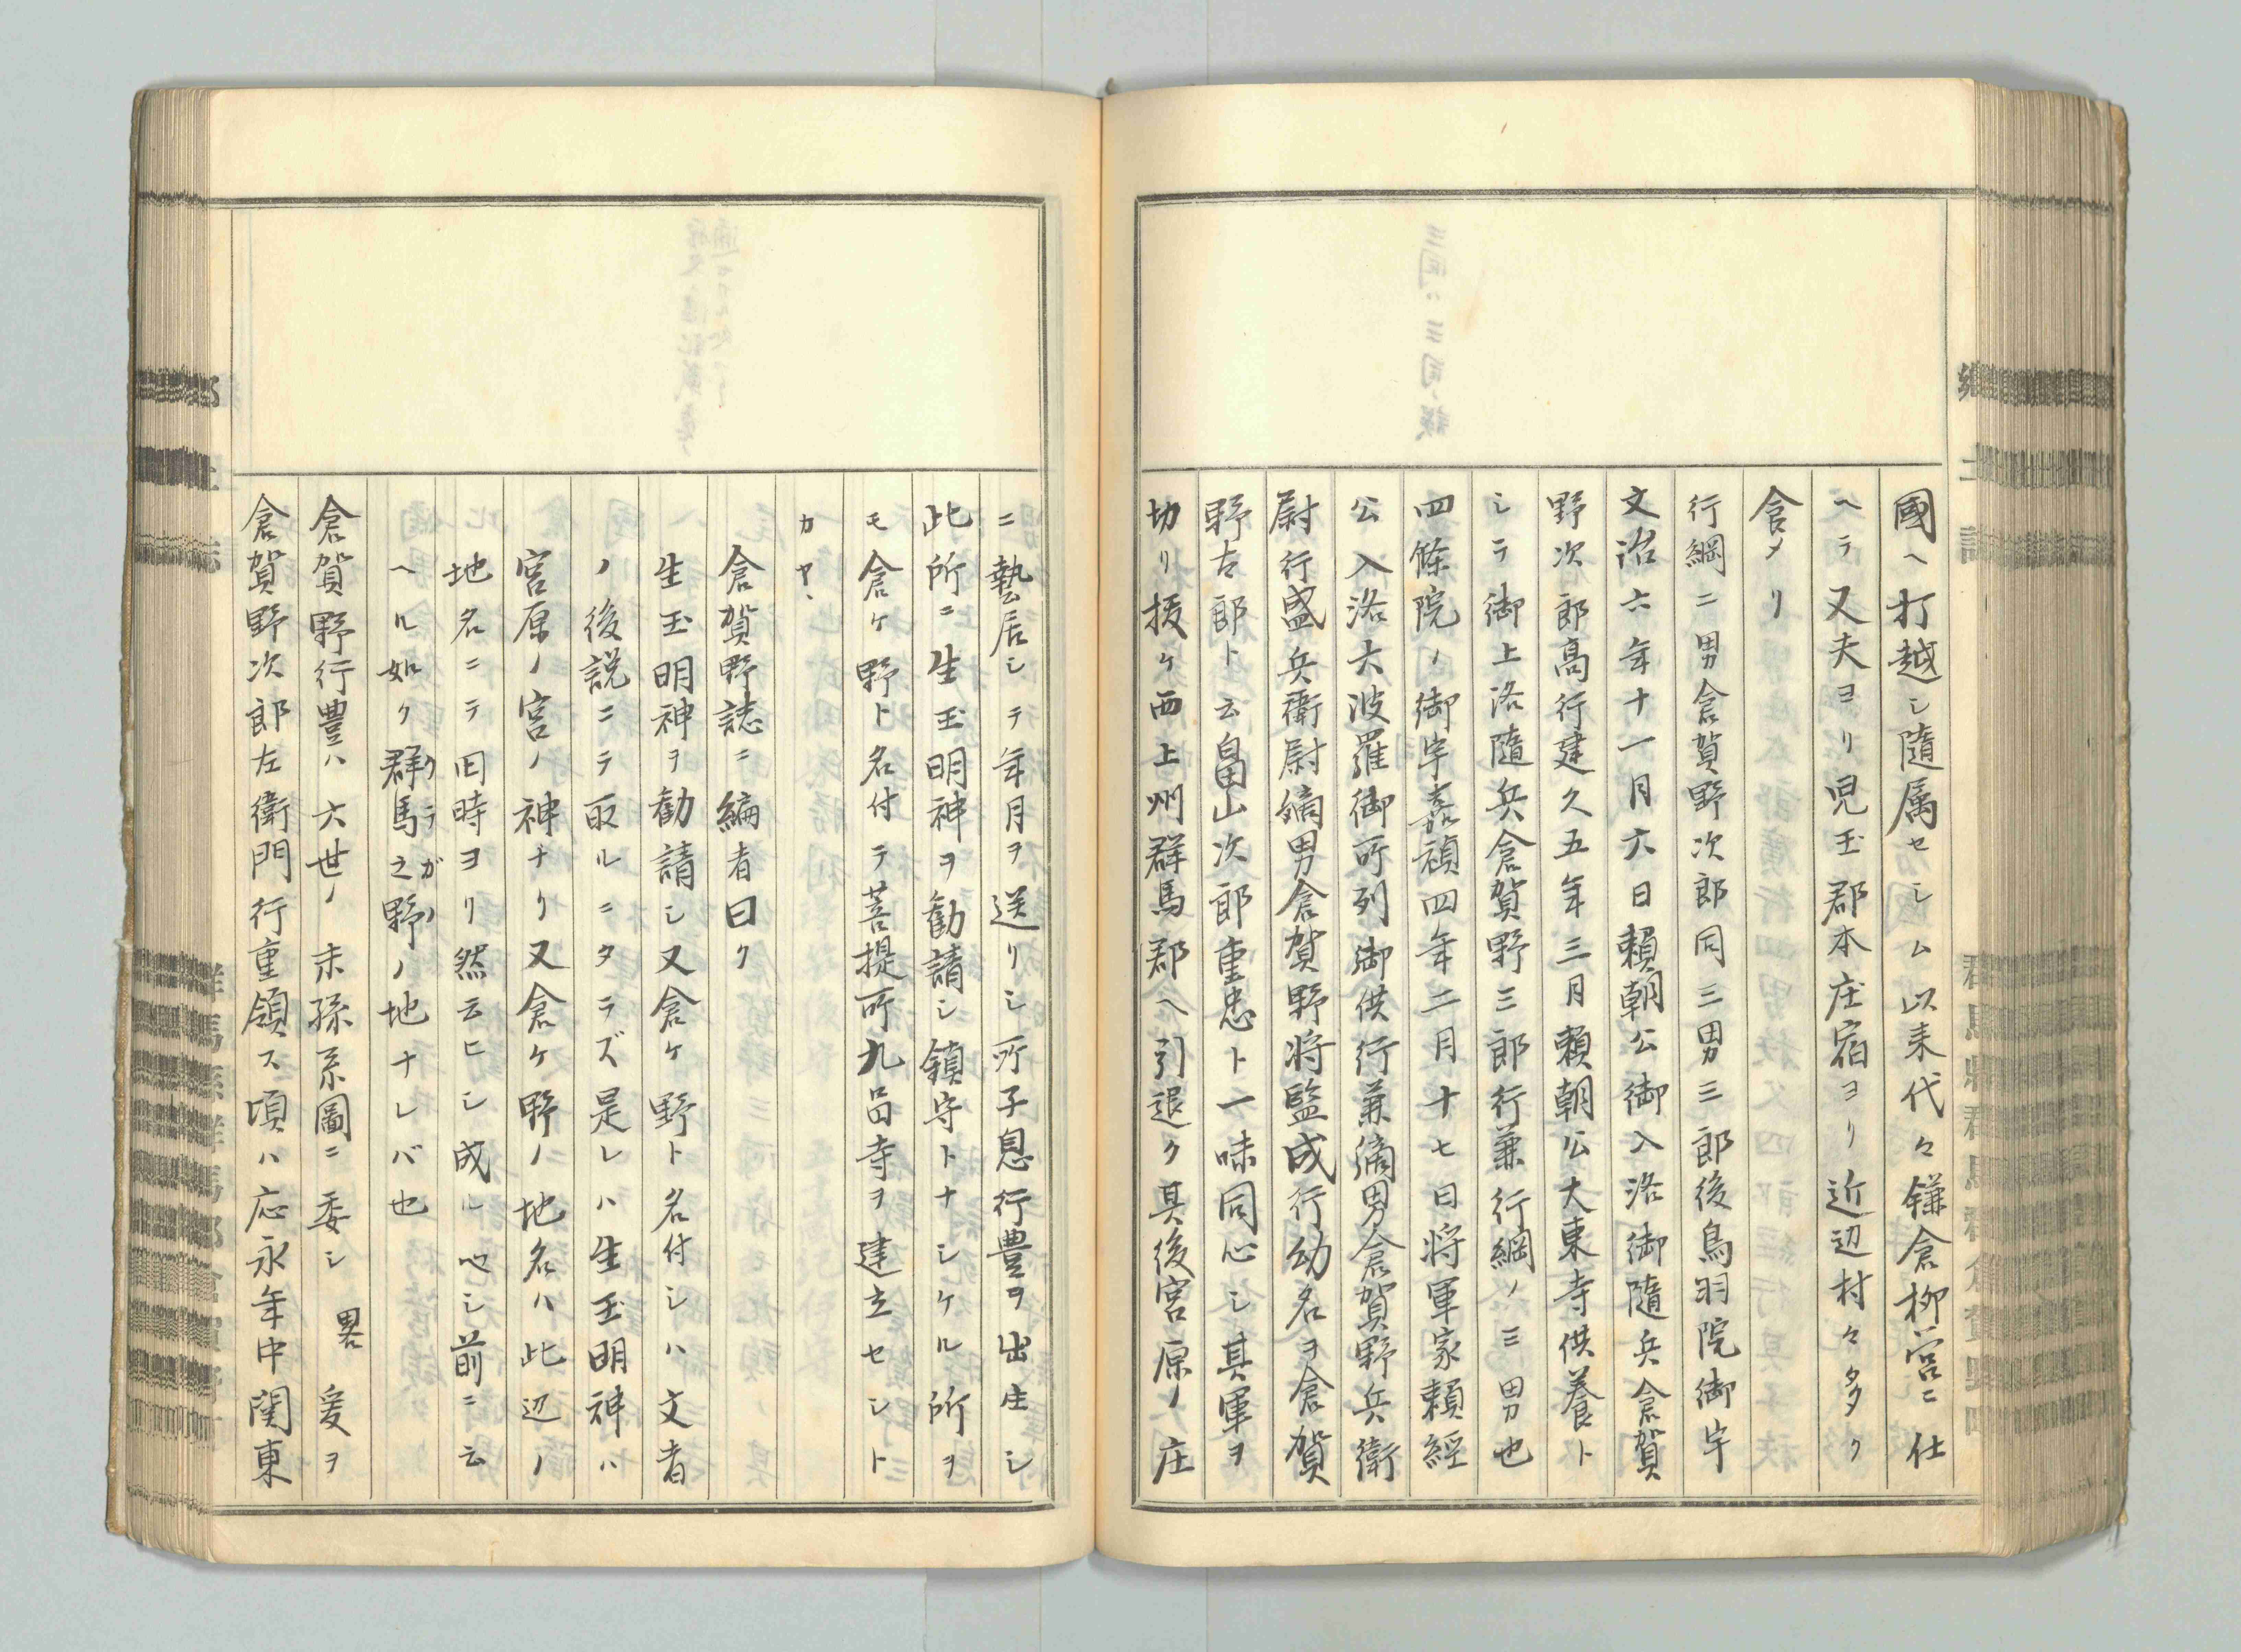 國ヘ打越シ隨属セシム以来代々鎌倉柳営ニ仕
ヘテ又夫ヨリ児玉郡本庄宿ヨリ近辺村々多ク
食メリ
行綱二男倉賀野次郎同三男三郎後鳥羽院御宇
文治六年十一月六日賴朝公御入洛御隨兵倉賀
野次郎高行建久五年三月賴朝公大東寺供養ト
シテ御上洛隨兵倉賀野三郎行兼行綱ノ三男也
四條院ノ御宇嘉禎四年二月十七日将軍家賴經
公入洛六波羅御所列御供行兼嫡男倉賀野兵衛
尉行盛兵衛尉嫡男倉賀野将監成行幼名ヲ倉賀
野左郎ト云畠山次郎重忠ト一味同心シ其軍ヲ
切リ拔ケ西上州群馬郡ヘ引退ク其後宮原ノ庄
ニ蟄居シテ年月ヲ送リシ所子息行豊ヲ出生シ
此所ニ生玉明神ヲ勧請シ鎮守トナシケル所ヲ
モ倉ケ野ト名付テ菩提所九品寺ヲ建立セシト
カヤ、
倉賀野誌ニ編者曰ク
生玉明神ヲ勧請シ又倉ケ野ト名付シハ文者
ノ後説ニテ取ルニタラズ是レハ生玉明神ハ
宮原ノ宮ノ神ナリ又倉ケ野ノ地名ハ此辺ノ
地名ニテ田時ヨリ然云ヒシ成ル也シ前ニ云
ヘル如ク群馬之野ノ地ナレバ也
クラガノ
倉賀野行豊ハ六世ノ末孫系圖ニ委シ 畧 爰ヲ
倉賀野次郎左衛門行重領ス頃ハ応永年中関東